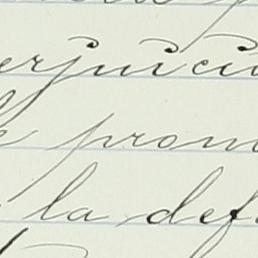 erjuicio
e prom
la def